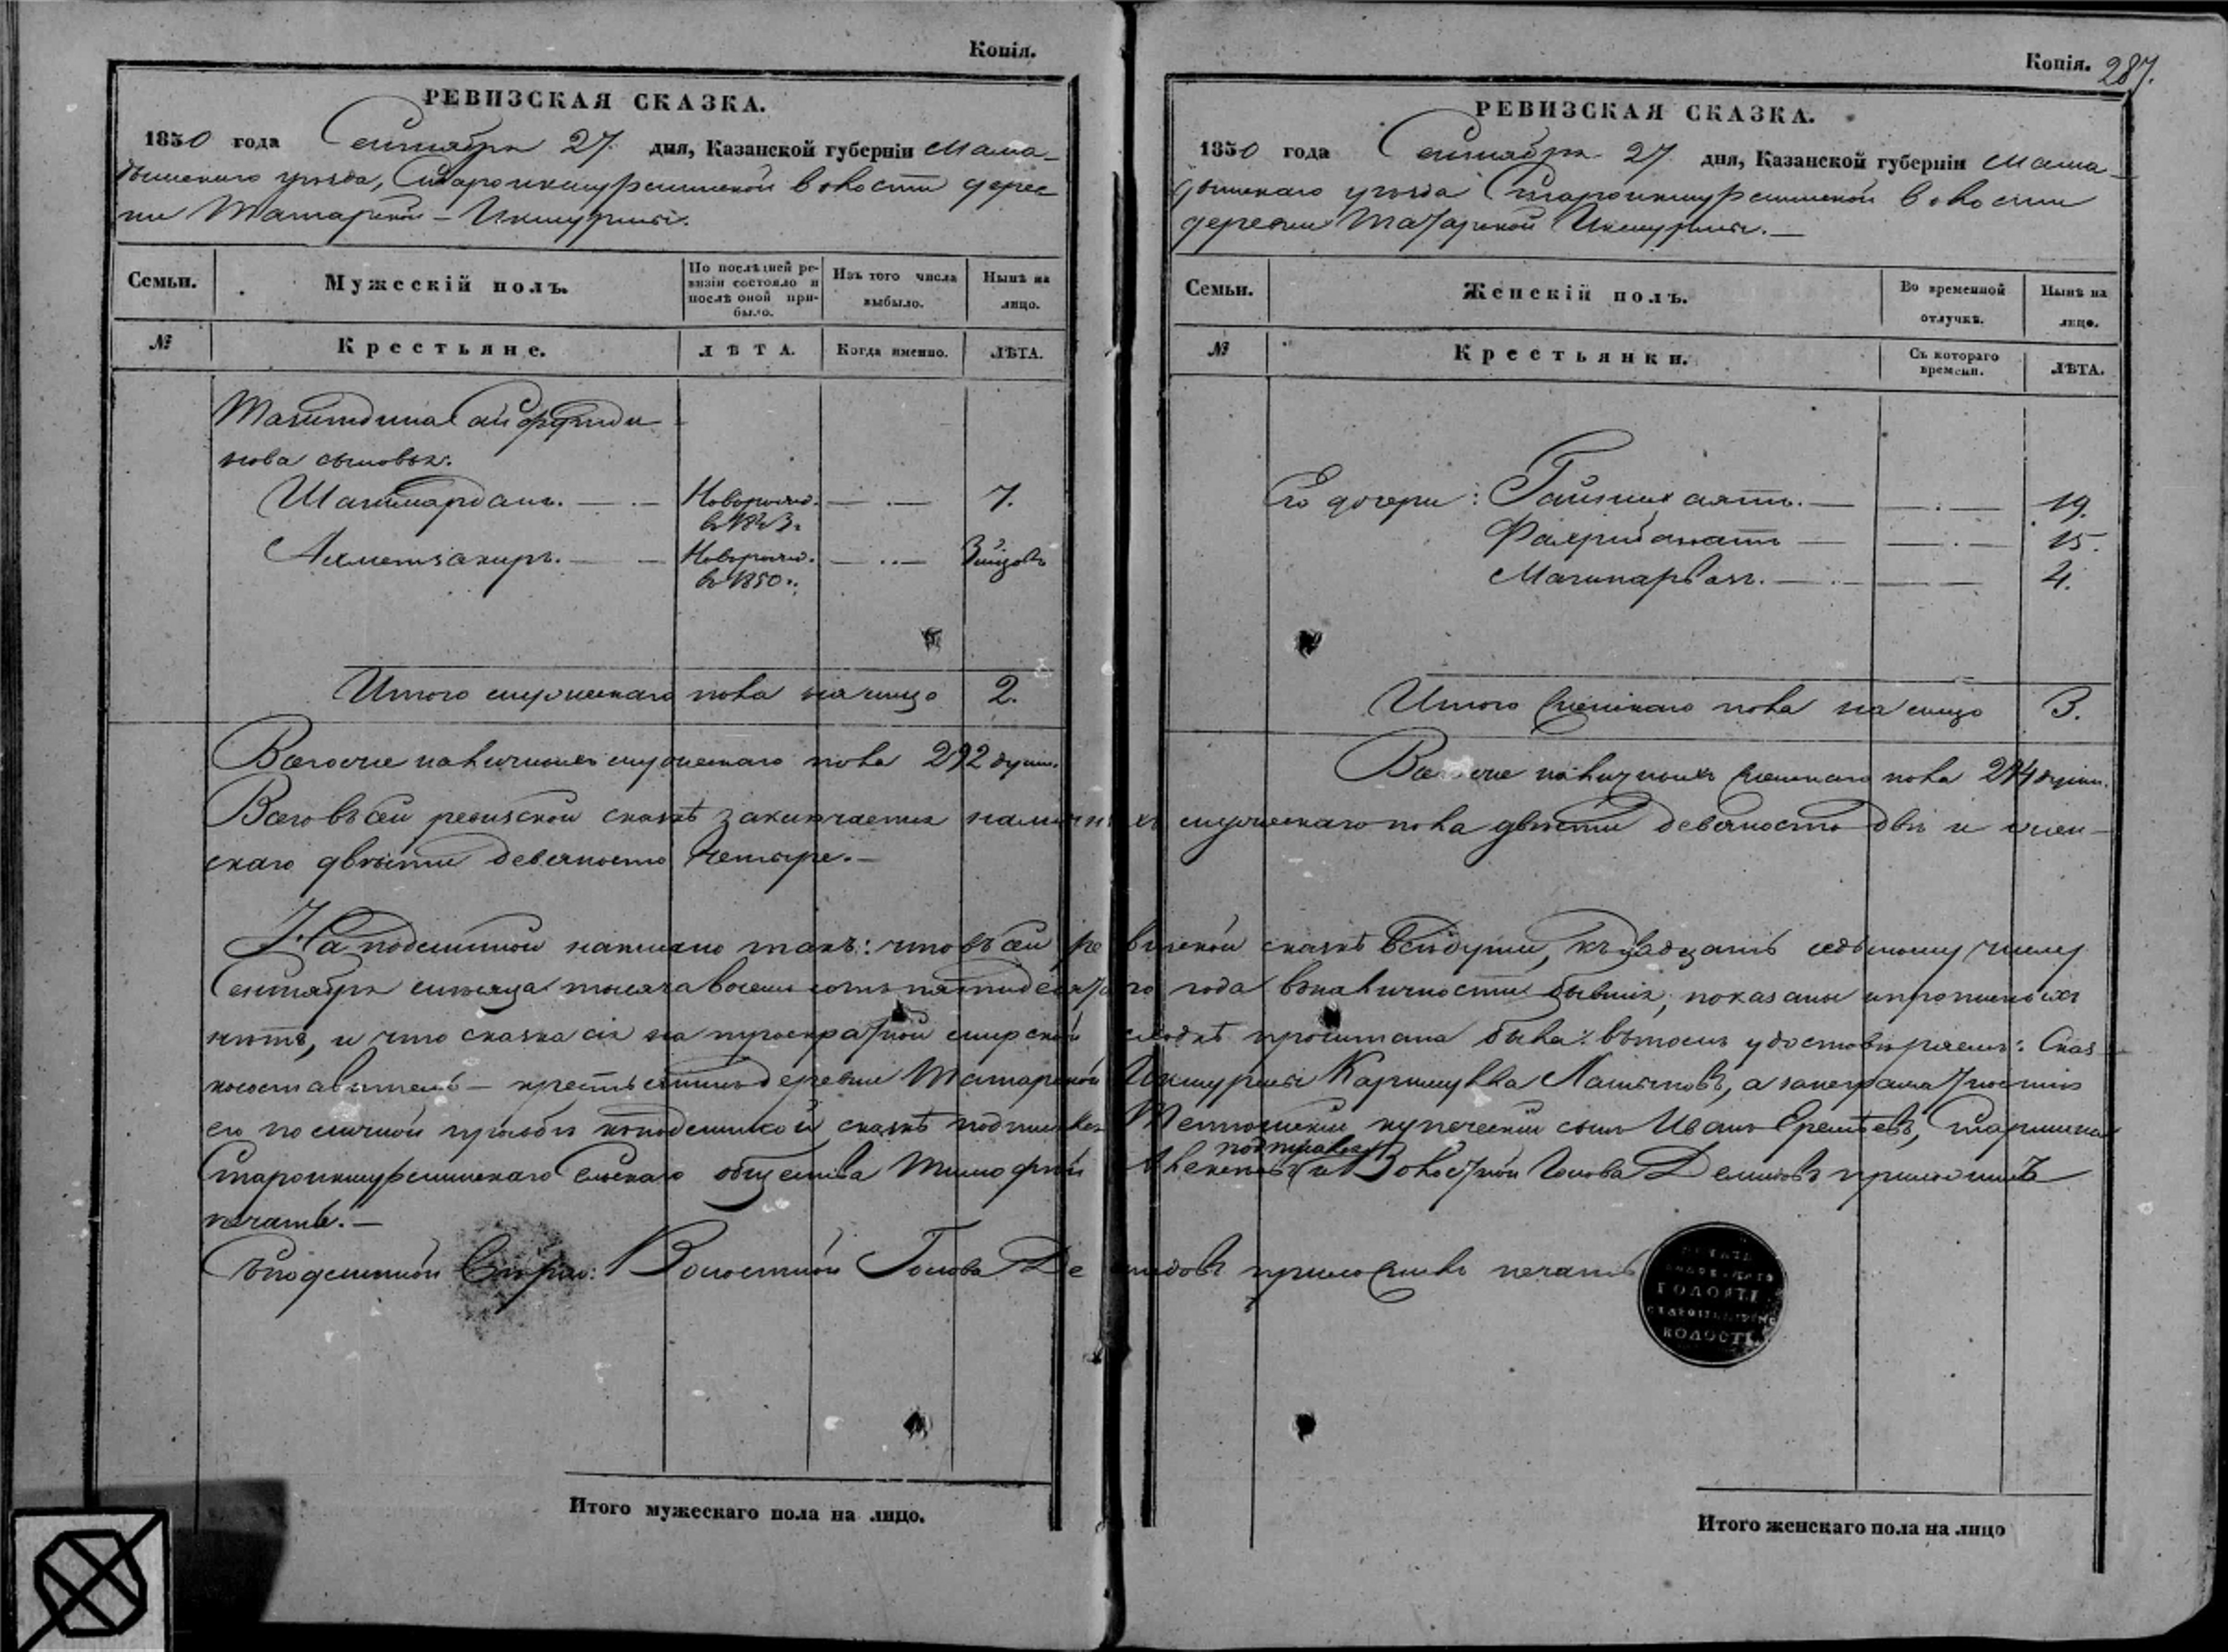 Копія.
РЕВИЗСКАЯ СКАЗКА.
1850 года Сентября 27 дня, Казанской губерніи Мама-
дышскаго уѣзда, Староикшурминской волости дерев
ни Татарской-Икшурмы.
Семьи.
Мужескій полъ.
По послѣдней ре-
визіи состояло и
послѣ оной при-
было.
Изъ того числа
выбыло.
Нынѣ на
лицо.
№
Крестьяне.
ЛѢТА.
Когда именно.
ЛѢТА.
Сайфутди
нова сыновья.
Шагимарданъ. — Новорожд. — 7.
в 1843г
Ахметзакиръ. — Новорожд. —
в 1850г.
Итого мужескаго пола на лицо 2.
Всего же наличныхъ мужескаго пола 292 души.
Копія. 287.
РЕВИЗСКАЯ СКАЗКА.
1850 года Сентября 27 дня, Казанской губерніи Мама-
дышскаго уѣзда Староикшурминской волости
деревни Татарской Икшурмы. —
Семьи.
Женскій полъ.
Во временной
отлучкѣ.
Нынѣ на
лицо.
№
Крестьянки.
Съ котораго
времени.
ЛѢТА.
Его дочери: — 19.
Фахрибанатъ — 15.
— 4.
Итого женскаго пола на лицо 3.
Всего же наличныхъ женскаго пола 294 души.
Всего въ сей ревизской сказкѣ заключается наличныхъ мужескаго пола двѣсти девяносто двѣ и жен-
скаго двѣсти девяносто четыре. —
На подлинной написано такъ: что въ сей ревизской сказкѣ всѣ души, къ двадцать седьмому числу
Сентября мѣсяца тысяча восемь сотъ пятидесятаго года въ наличности бывшія, показаны и прописныхъ
нѣтъ, и что сказка сія на троекратной мирской сходкѣ прочитана была: въ томъ удостовѣряемъ: Сказ
косоставитель — крестьянинъ деревни Татарской Икшурмы, а за неграмотностію
его по личной прозьбѣ къ подлинной сказкѣ подписал Тетюшскій купеческій сынъ Иванъ, Старшина
Староикшурминскаго Сельскаго общества Тимофей и Волостной Голова Демидовъ приложилъ
печать. —
Съ подлинной вѣрно: Волостной Голова Демидовъ приложилъ печать
ПЕЧАТЬ
ВОЛОСТИ
Итого мужескаго пола на лицо.
Итого женскаго пола на лицо